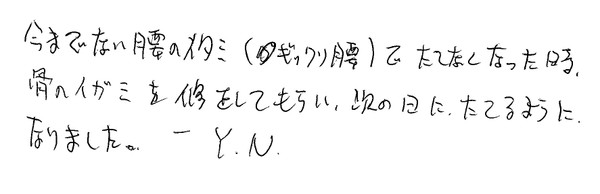 今までない腰のイタミ（ギックリ腰）でたてなくなった時、
骨のイガミを修をしてもらい、次の日に、たてるように、
なりました。 ー Y.N.